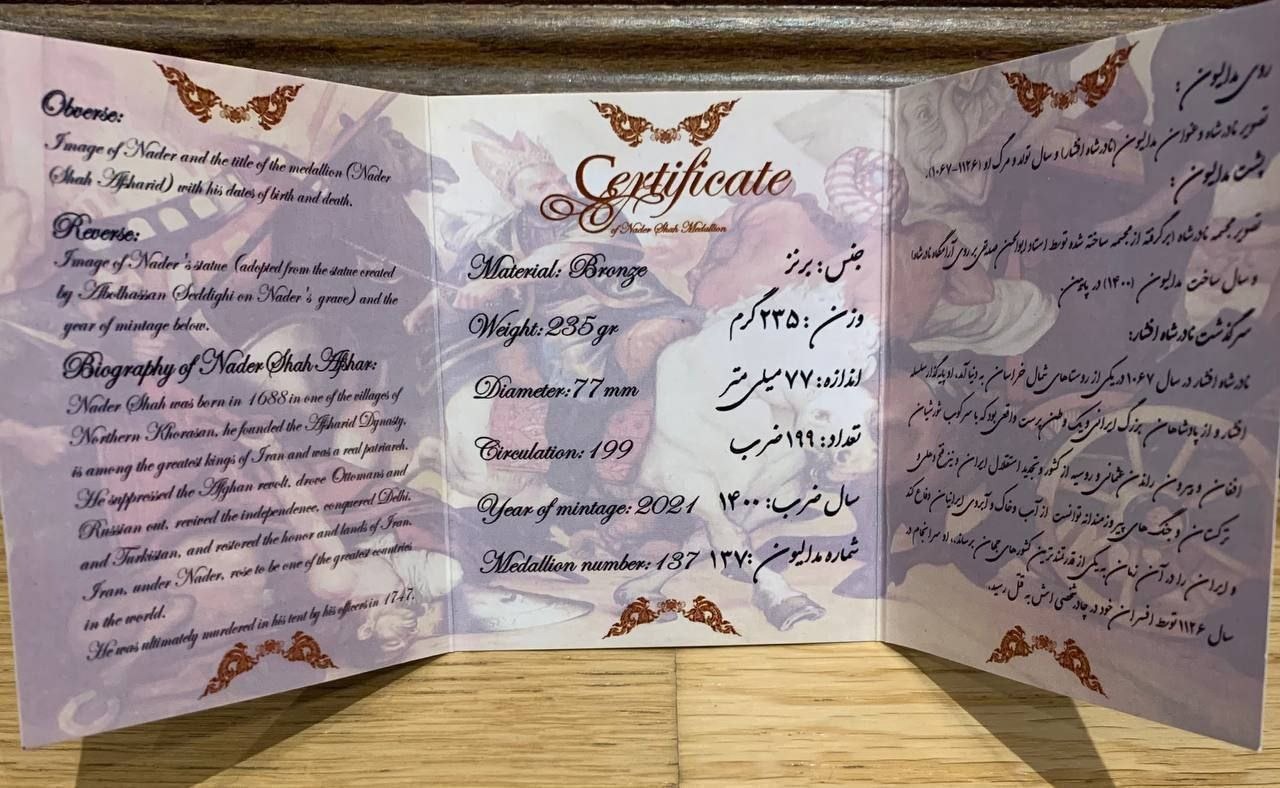 Obverse:
Image of Nader and the title of the medallion (Nader
Shah Afsharid) with his dates of birth and death.
Reverse:
Image of Nader's statue (adopted from the statue created
by Abolhassan Seddighi on Nader's grave) and the
year of mintage below.
Biography of Nader Shah Afshar:
Nader Shah was born in 1688 in one of the villages of
Northern Khorasan, he founded the Afsharid Dynasty,
is among the greatest kings of Iran and was a real patriarch.
He suppressed the Afghan revolt, drove Ottomans and
Russian out, revived the independence, conquered Delhi,
and Turkistan, and restored the honor and lands of Iran.
Iran, under Nader, rose to be one of the greatest countries
in the world.
He was ultimately murdered in his tent by his officers in 1747.
Certificate
of Nader Shah Medallion
Material: Bronze
جنس: برنز
Weight: 235 gr
وزن: ۲۳۵ گرم
Diameter: 77 mm
اندازه: ۷۷ میلی متر
Circulation: 199
تعداد: ۱۹۹ ضرب
Year of mintage: 2021
سال ضرب: ۱۴۰۰
Medallion number: 137
شماره مدالیون: ۱۳۷
روی مدالیون:
تصویر نادرشاه و عنوان مدالیون (نادرشاه افشار) و سال تولد و مرگ او (۱۱۲۶-۱۰۶۷).
پشت مدالیون:
تصویر مجسمه نادرشاه (برگرفته از مجسمه ساخته شده توسط استاد ابوالحسن صدیقی بر روی آرامگاه نادرشاه)
و سال ساخت مدالیون (۱۴۰۰) در پایین.
سرگذشت نادرشاه افشار:
نادرشاه افشار در سال ۱۰۶۷ در یکی از روستاهای شمال خراسان به دنیا آمد، او بنیانگذار سلسله
افشار و از پادشاهان بزرگ ایرانی و یک وطن پرست واقعی بود که با سرکوب شورشیان
افغان و بیرون راندن عثمانی و روسیه از کشور و تجدید استقلال ایران و نیز فتح دهلی و
ترکستان و جنگ های پیروزمندانه توانست از آب و خاک و آبروی ایرانیان دفاع کند
و ایران را در آن زمان به یکی از قدرتمندترین کشورهای جهان برساند، او سرانجام در
سال ۱۱۲۶ توسط افسران خود در چادر شخصی اش به قتل رسید.